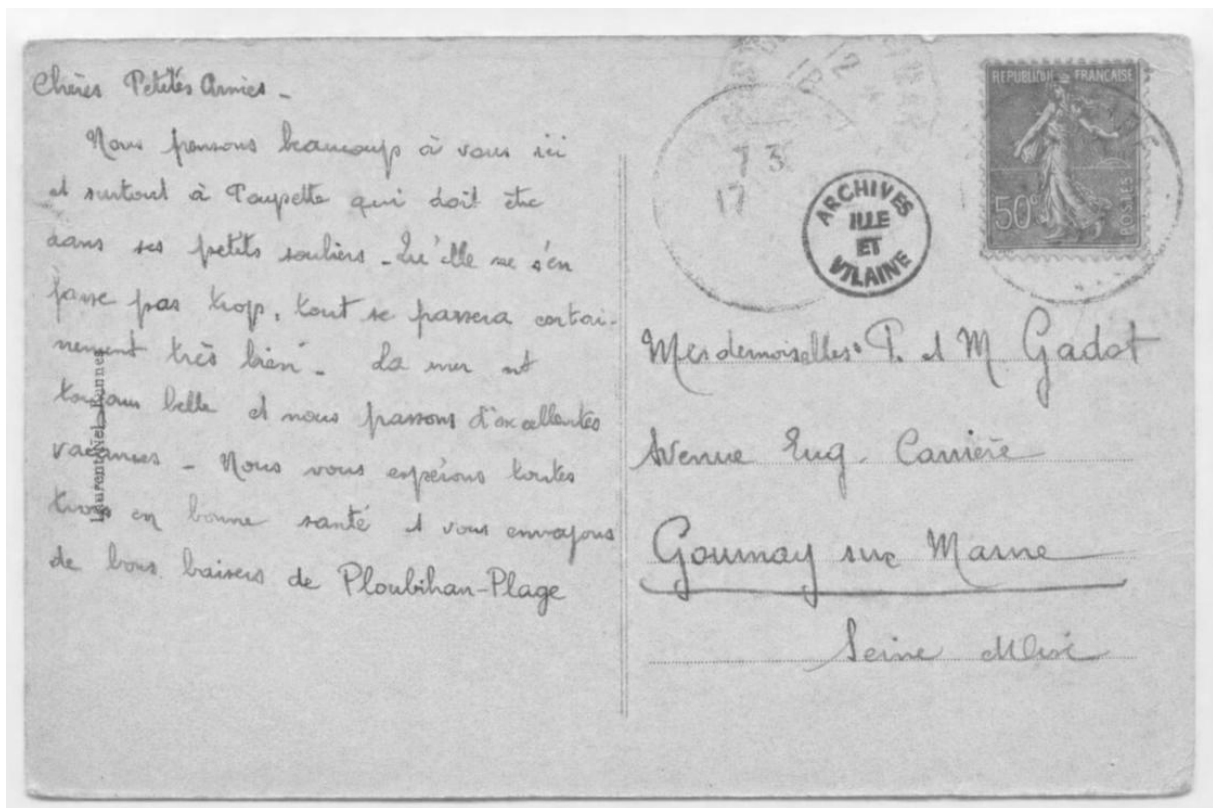 Chères Petites Amies -
Nous pensons beaucoup à vous ici
et surtout à Poupette qui doit être
dans ses petits souliers - Qu'elle ne s'en
fasse pas trop, tout se passera certai-
nement très bien - La mer est
toujours belle et nous passons d'excellentes
vacances - Nous vous espérons toutes
trois en bonne santé et vous envoyons
de bons baisers de Ploubihan-Plage
Laurent-Nel, Rennes
7 3
17
ARCHIVES
ILLE
ET
VILAINE
REPUBLIQUE FRANCAISE
50c
POSTES
Mesdemoiselles P. et M Gadot
Avenue Eug. Carrière
Gournay sur Marne
Seine et Oise